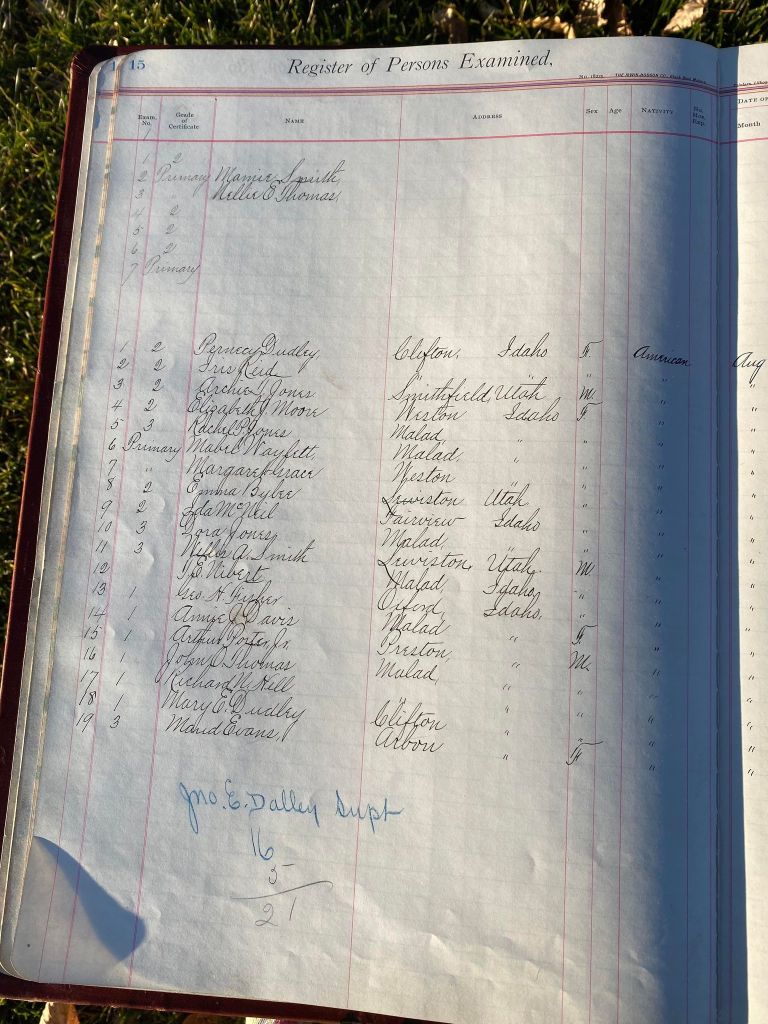 15 Register of Persons Examined,
Exam. No. Grade of Certificate NAME ADDRESS Sex Age NATIVITY No. Mon. Exp. DATE OF
Month
1 2
2 Primary Mamie Smith,
3 " Nellie E Thomas,
4 2
5 2
6 2
7 Primary
1 2 Pernecy Dudley, Clifton, Idaho F. American Aug
2 2 Iris Reid " " " " "
3 2 Archie J Jones Smithfield, Utah M. " "
4 2 Elizabeth J. Moore Weston Idaho F " "
5 3 Rachel P Jones Malad, " " " "
6 Primary Mabel Wayfett, Malad, " " " "
7 " Margaret Grace Weston " " " "
8 2 Emma Bybee Lewiston Utah " " "
9 2 Ida McNeil Fairview Idaho " " "
10 3 Zora Jones, Malad, " " " "
11 3 Willis A. Smith Lewiston, Utah. M. " "
12 J. E. Malad, Idaho, " " "
13 1 Geo. H. Fisher Oxford, Idaho, " " "
14 1 Annie Davis Malad " F. " "
15 1 Arthur Porter, Jr. Preston, " M. " "
16 1 John Thomas Malad, " " " "
17 1 Richard Hill " " " " "
18 1 Mary E. Dudley Clifton " " "
19 3 Maud Evans, Arbon " F "
Jno. E. Dalley Supt
16
5
21